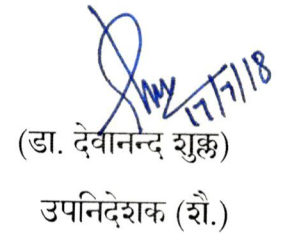 17/7/18
(डा. देवानन्द शुक्ल)
उपनिदेशक (शै.)